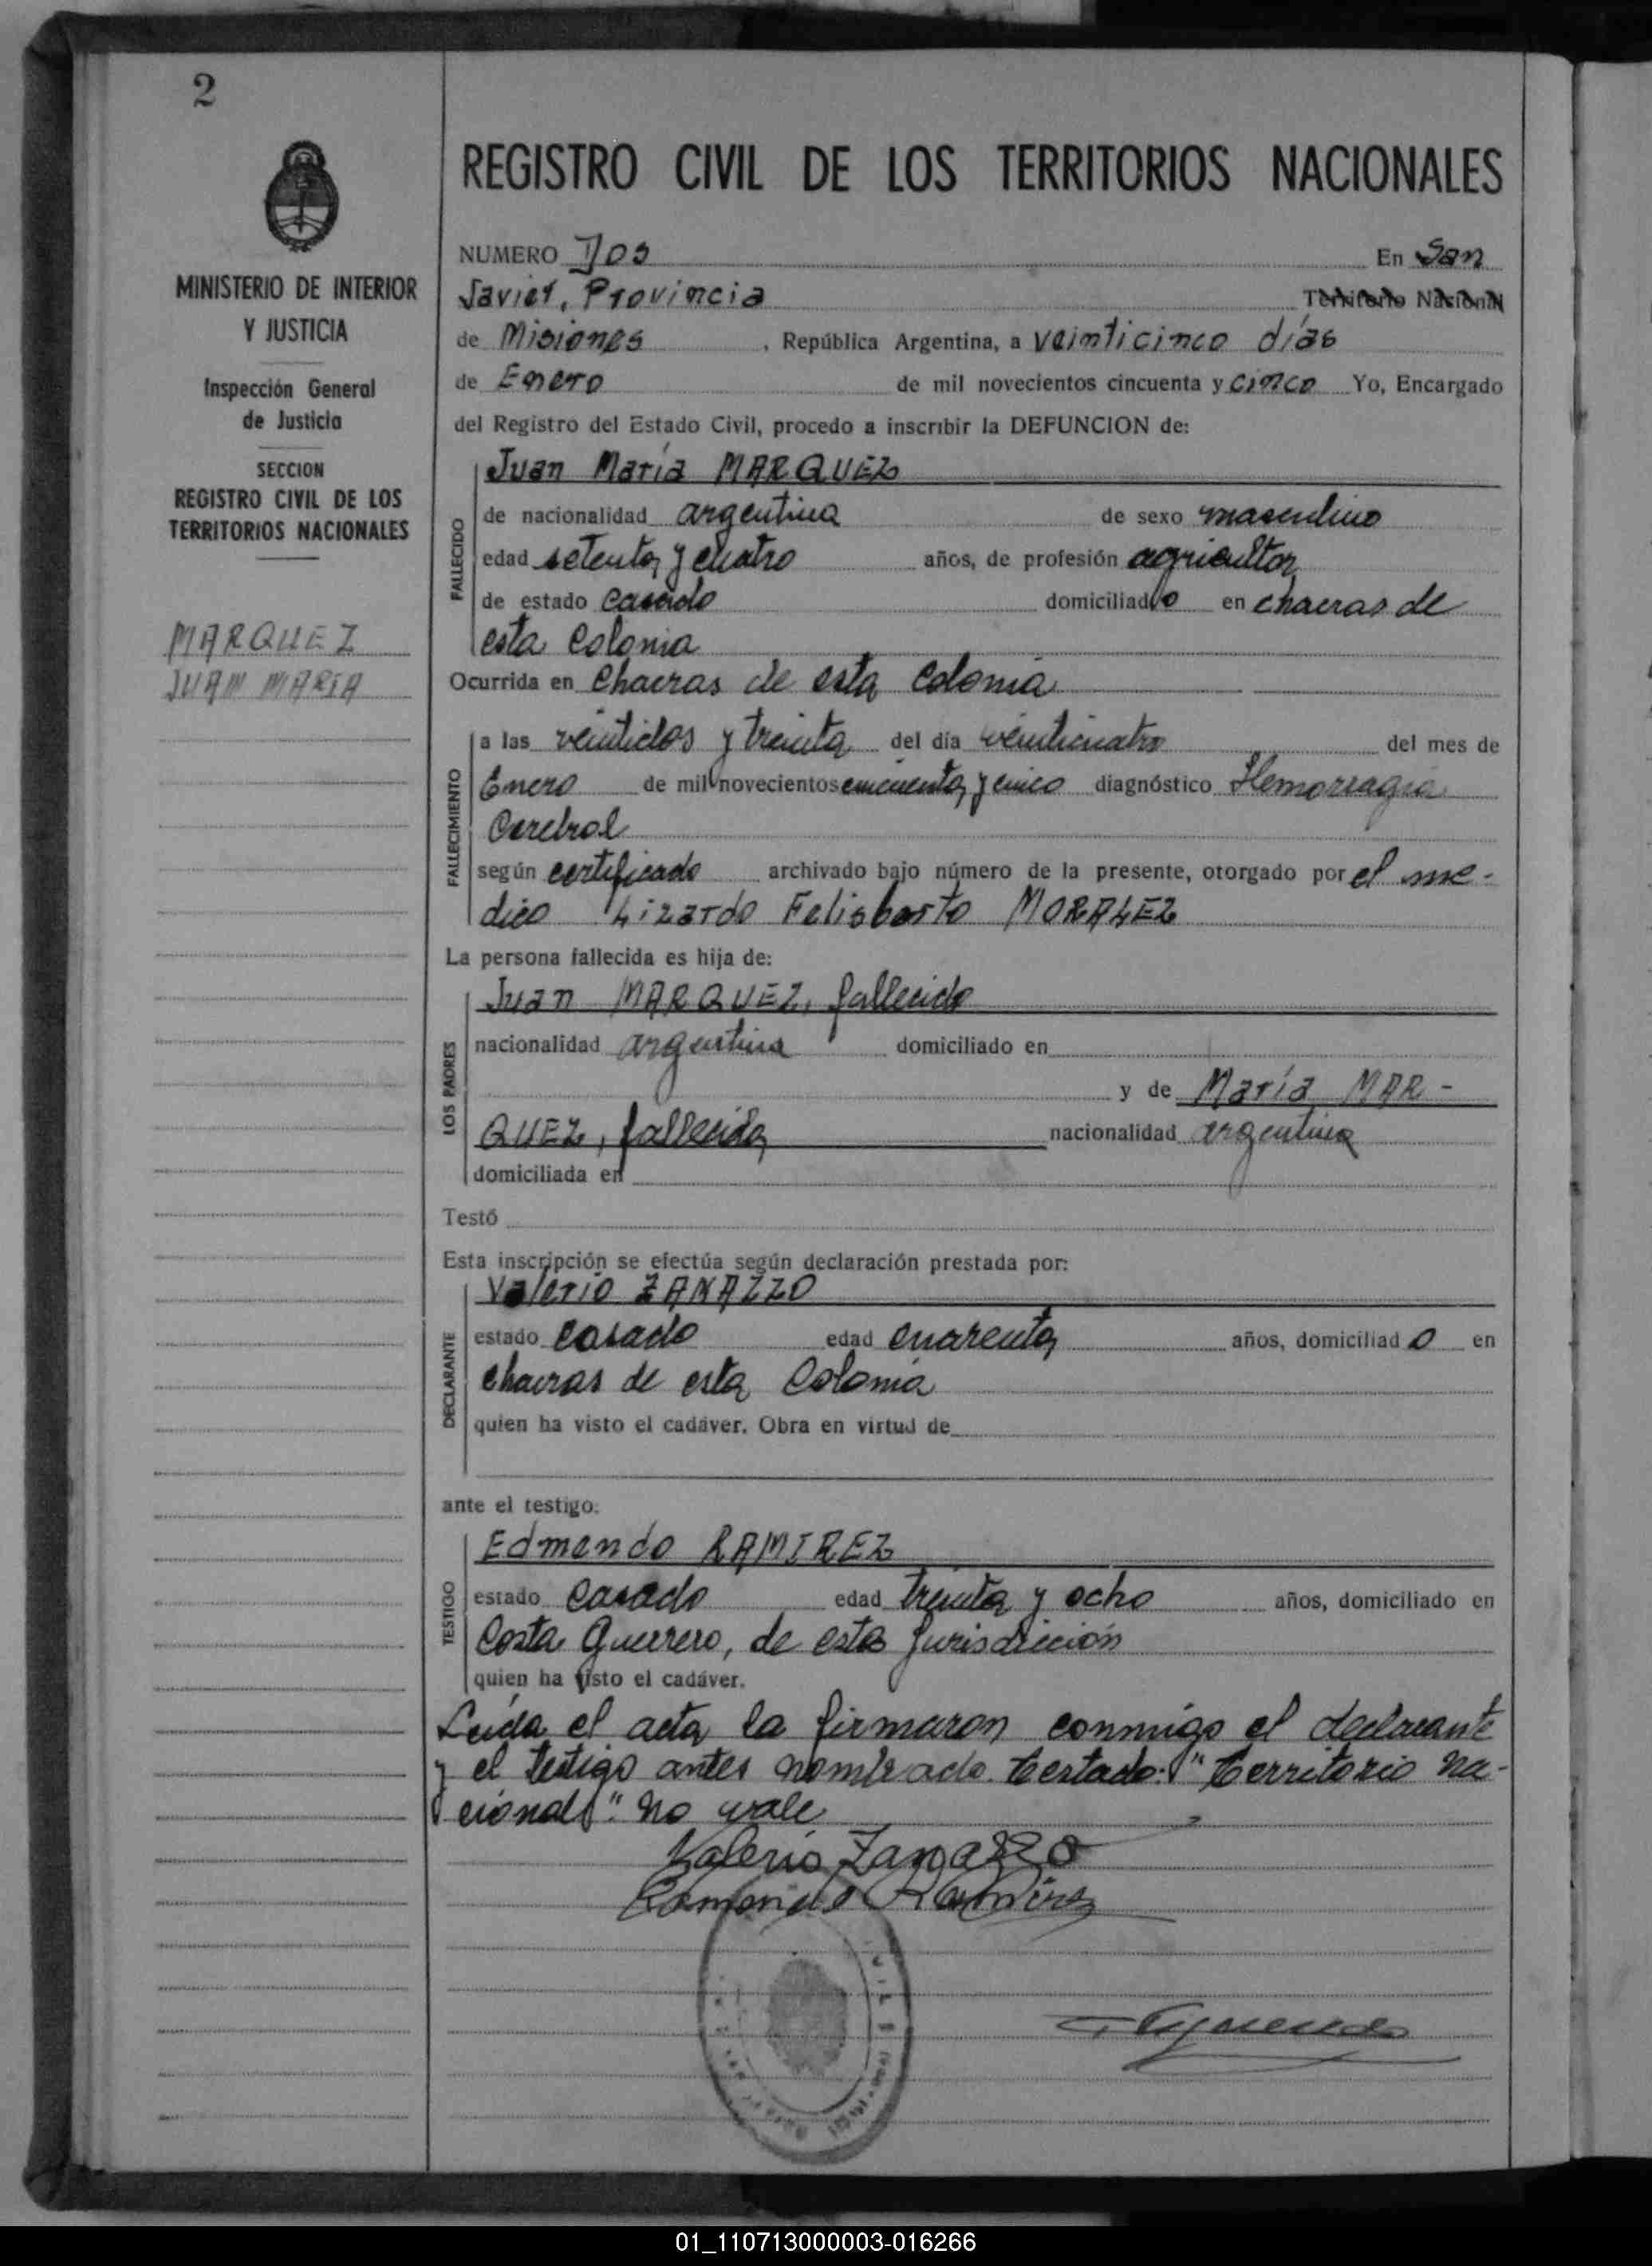 2
MINISTERIO DE INTERIOR
Y JUSTICIA
Inspección General
de Justicia
SECCION
REGISTRO CIVIL DE LOS
TERRITORIOS NACIONALES
MARQUEZ
JUAN MARIA
REGISTRO CIVIL DE LOS TERRITORIOS NACIONALES
NUMERO Dos En San
Javier, Provincia Territorio Nacional
de Misiones, República Argentina, a veinticinco días
de Enero de mil novecientos cincuenta y cinco Yo, Encargado
del Registro del Estado Civil, procedo a inscribir la DEFUNCION de:
Juan María MARQUEZ
FALLECIDO
de nacionalidad argentina de sexo masculino
edad setenta y cuatro años, de profesión agricultor
de estado casado domiciliado en chacras de
esta Colonia
Ocurrida en Chacras de esta Colonia
FALLECIMIENTO
a las veintidos y treinta del día veinticuatro del mes de
Enero de mil novecientos cincuenta y cinco diagnóstico Hemorragia
Cerebral
según certificado archivado bajo número de la presente, otorgado por el me-
dico Lizardo Felisberto MORALEZ
La persona fallecida es hija de:
LOS PADRES
Juan MARQUEZ, fallecido
nacionalidad argentina domiciliado en
y de María MAR-
QUEZ, fallecida nacionalidad argentina
domiciliada en
Testó
Esta inscripción se efectúa según declaración prestada por:
DECLARANTE
Valerio ZANAZZO
estado Casado edad cuarenta años, domiciliado en
chacras de esta Colonia
quien ha visto el cadáver. Obra en virtud de
ante el testigo:
TESTIGO
Edmundo RAMIREZ
estado Casado edad treinta y ocho años, domiciliado en
Costa Guerrero, de esta Jurisdicción
quien ha visto el cadáver.
Leída el acta la firmaron conmigo el declarante
y el testigo antes nombrado. testado: "territorio na-
cional": no vale
Valerio Zanazzo
Ramirez
01_110713000003-016266